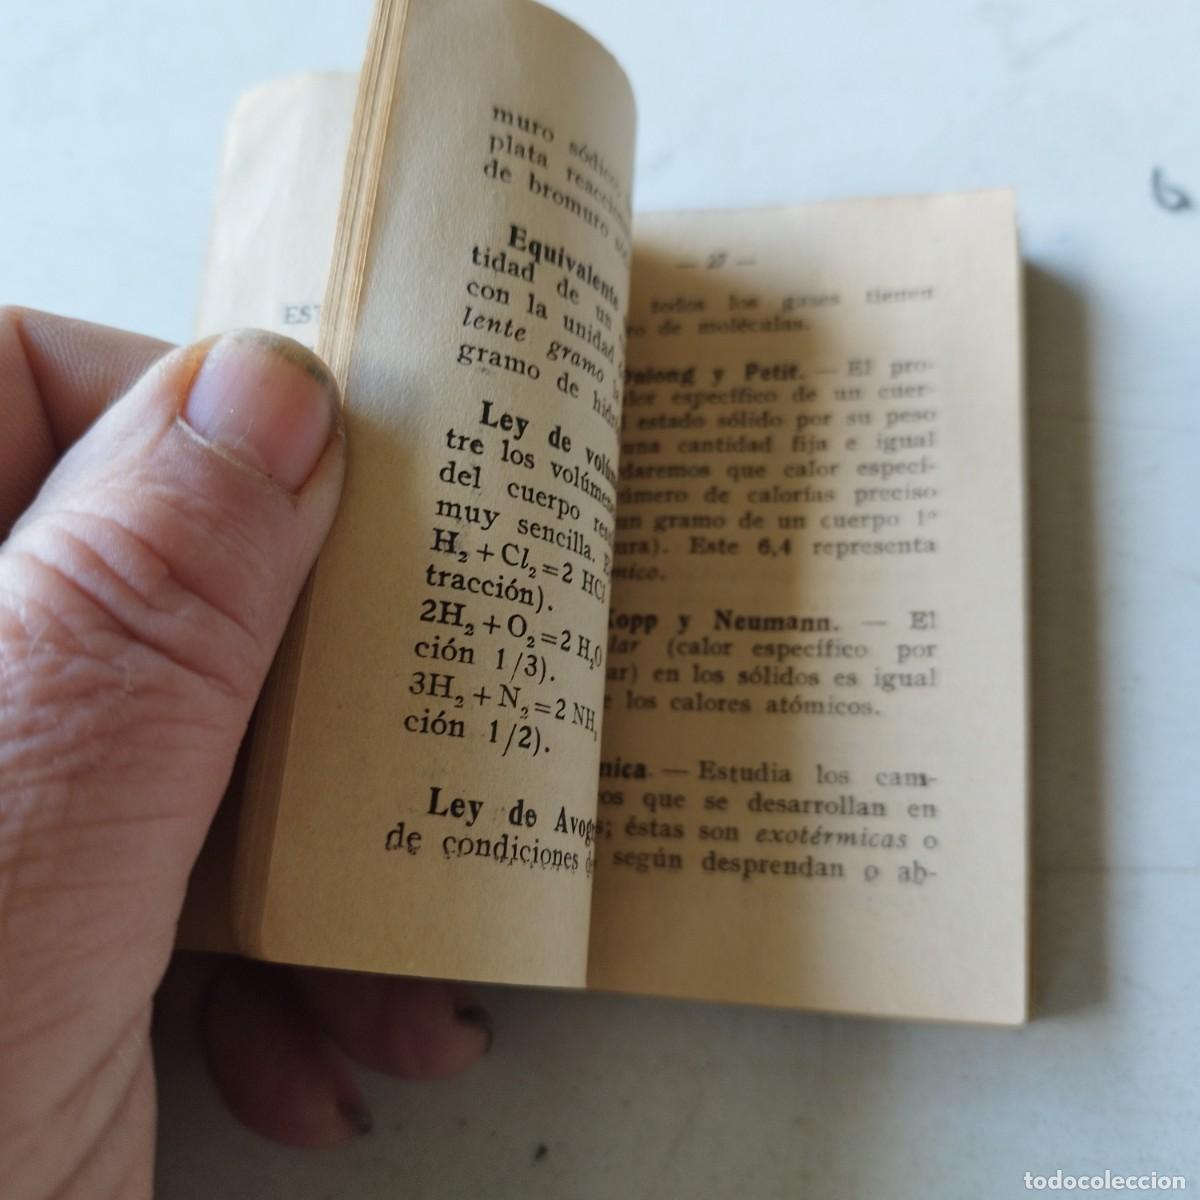 EST
muro sódico
plata reaccion
de bromuro
Equivalente
tidad de un
con la unidad
lente gramo
gramo de hidr
Ley de volúm
tre los volúmene
del cuerpo res
muy sencilla.
H₂ + Cl₂ = 2 HCl
tracción).
2H₂ + O₂ = 2 H₂O
ción 1/3).
3H₂ + N₂ = 2 NH₃
ción 1/2).
Ley de Avog
de condiciones
todos los gases tienen
ro de moléculas.
Dulong y Petit. — El pro-
lor específico de un cuer-
estado sólido por su peso
una cantidad fija e igual
daremos que calor especí-
úmero de calorías preciso
un gramo de un cuerpo 1º
ura). Este 6,4 representa
mico.
Kopp y Neumann. — El
lar (calor específico por
ar) en los sólidos es igual
los calores atómicos.
nica. — Estudia los cam-
os que se desarrollan en
s; éstas son exotérmicas o
según desprendan o ab-
todocoleccion